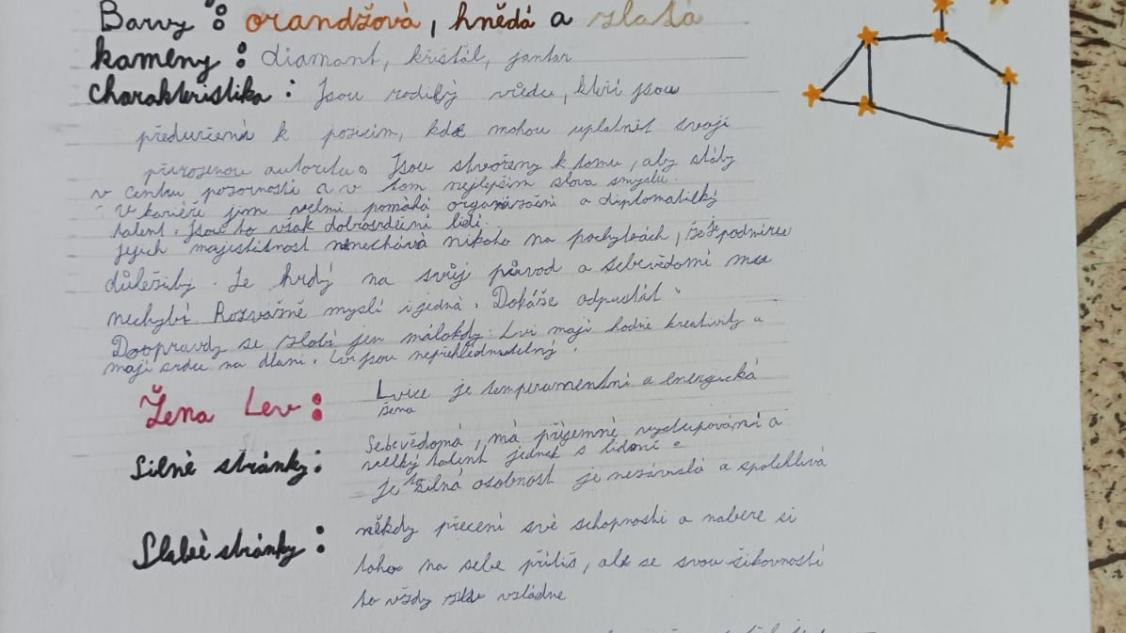 Barvy : orandžová, hnědá a zlatá
kameny : diamant, kristál, jantar
charakteristika : Jsou rodilý vůdci, kteří jsou
předurčená k pozicím, kde mohou uplatnit svoji
přirozenou autoritu. Jsou stvořeny k tomu, aby stály
v centru pozornosti a v tom nejlepším slova smyslu.
V kariéře jim velmi pomáhá organizační a diplomatický
talent. Jsou to však dobrosrdeční lidi.
jejich majestátnost nenechává nikoho na pochybách, že
důležitý. Je hrdý na svůj původ a sebevědomí mu
nechybí Rozvážně myslí i jedná. Dokáže odpustit.
Doopravdy se zlobí jen málokdy. Lvi mají hodně kreativity a
mají srdce na dlani. Lvi jsou nepřehlédnutelný.
Žena Lev : Lvice je temperamentní a energická
žena
Silné stránky : Sebevědomá, má příjemné vystupování a
velký talent jednat s lidmi.
je silná osobnost je nezávislá a spolehlivá
Slabé stránky : někdy přecení své schopnosti a nabere si
toho na sebe příliš, ale se svou šikovností
to vždy vzládne